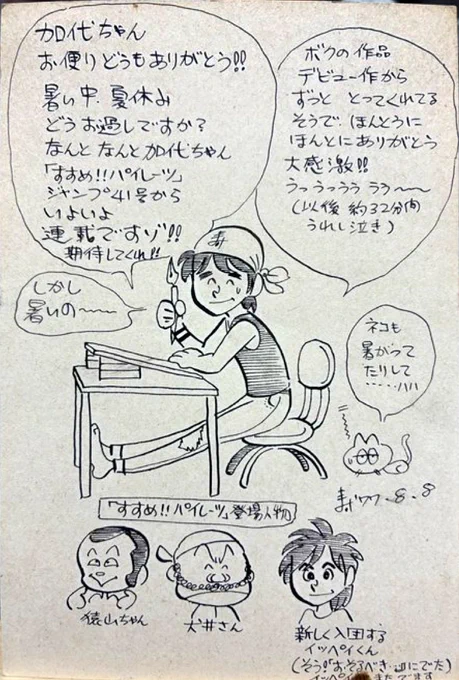 加代ちゃん
お便りどうもありがとう!!
暑い中、夏休み
どうお過しですか?
なんと なんと加代ちゃん
「すすめ!!パイレーツ」
ジャンプ41号から
いよいよ
連載ですゾ!!
期待してくれ!!
ボクの作品
デビュー作から
ずっと とってくれてる
そうで、ほんとうに
ほんとにありがとう
大感激!!
うっうっうう うう〜〜
(以後 約32分間
うれし泣き)
しかし
暑いの〜〜〜
ネコも
暑がって
たりして
……ハハ
寿
77.8.8
「すすめ!!パイレーツ」登場人物
猿山ちゃん
犬井さん
新しく入団する
イッペイくん
(そう!「おそるべき にでた)
イッペイ またでます